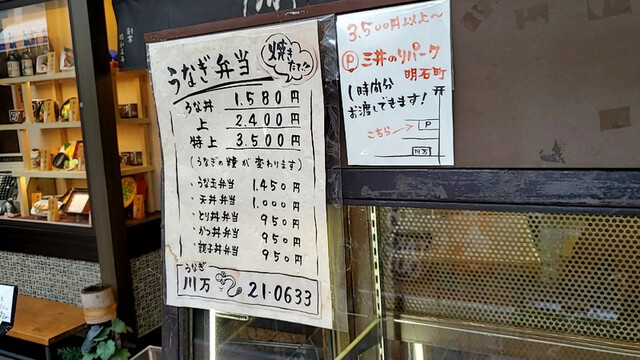 うなぎ弁当
焼きたて!!
うな丼 1.580円
上 2.400円
特上 3.500円
(うなぎの量が変わります)
・うな玉弁当 1.450円
・天丼弁当 1.000円
・とり丼弁当 950円
・かつ丼弁当 950円
・親子丼弁当 950円
うなぎ
川万 21-0633
3.500円以上〜
P 三井のりパーク
明石町
1時間分
お渡しできます!
こちら→
P
川万